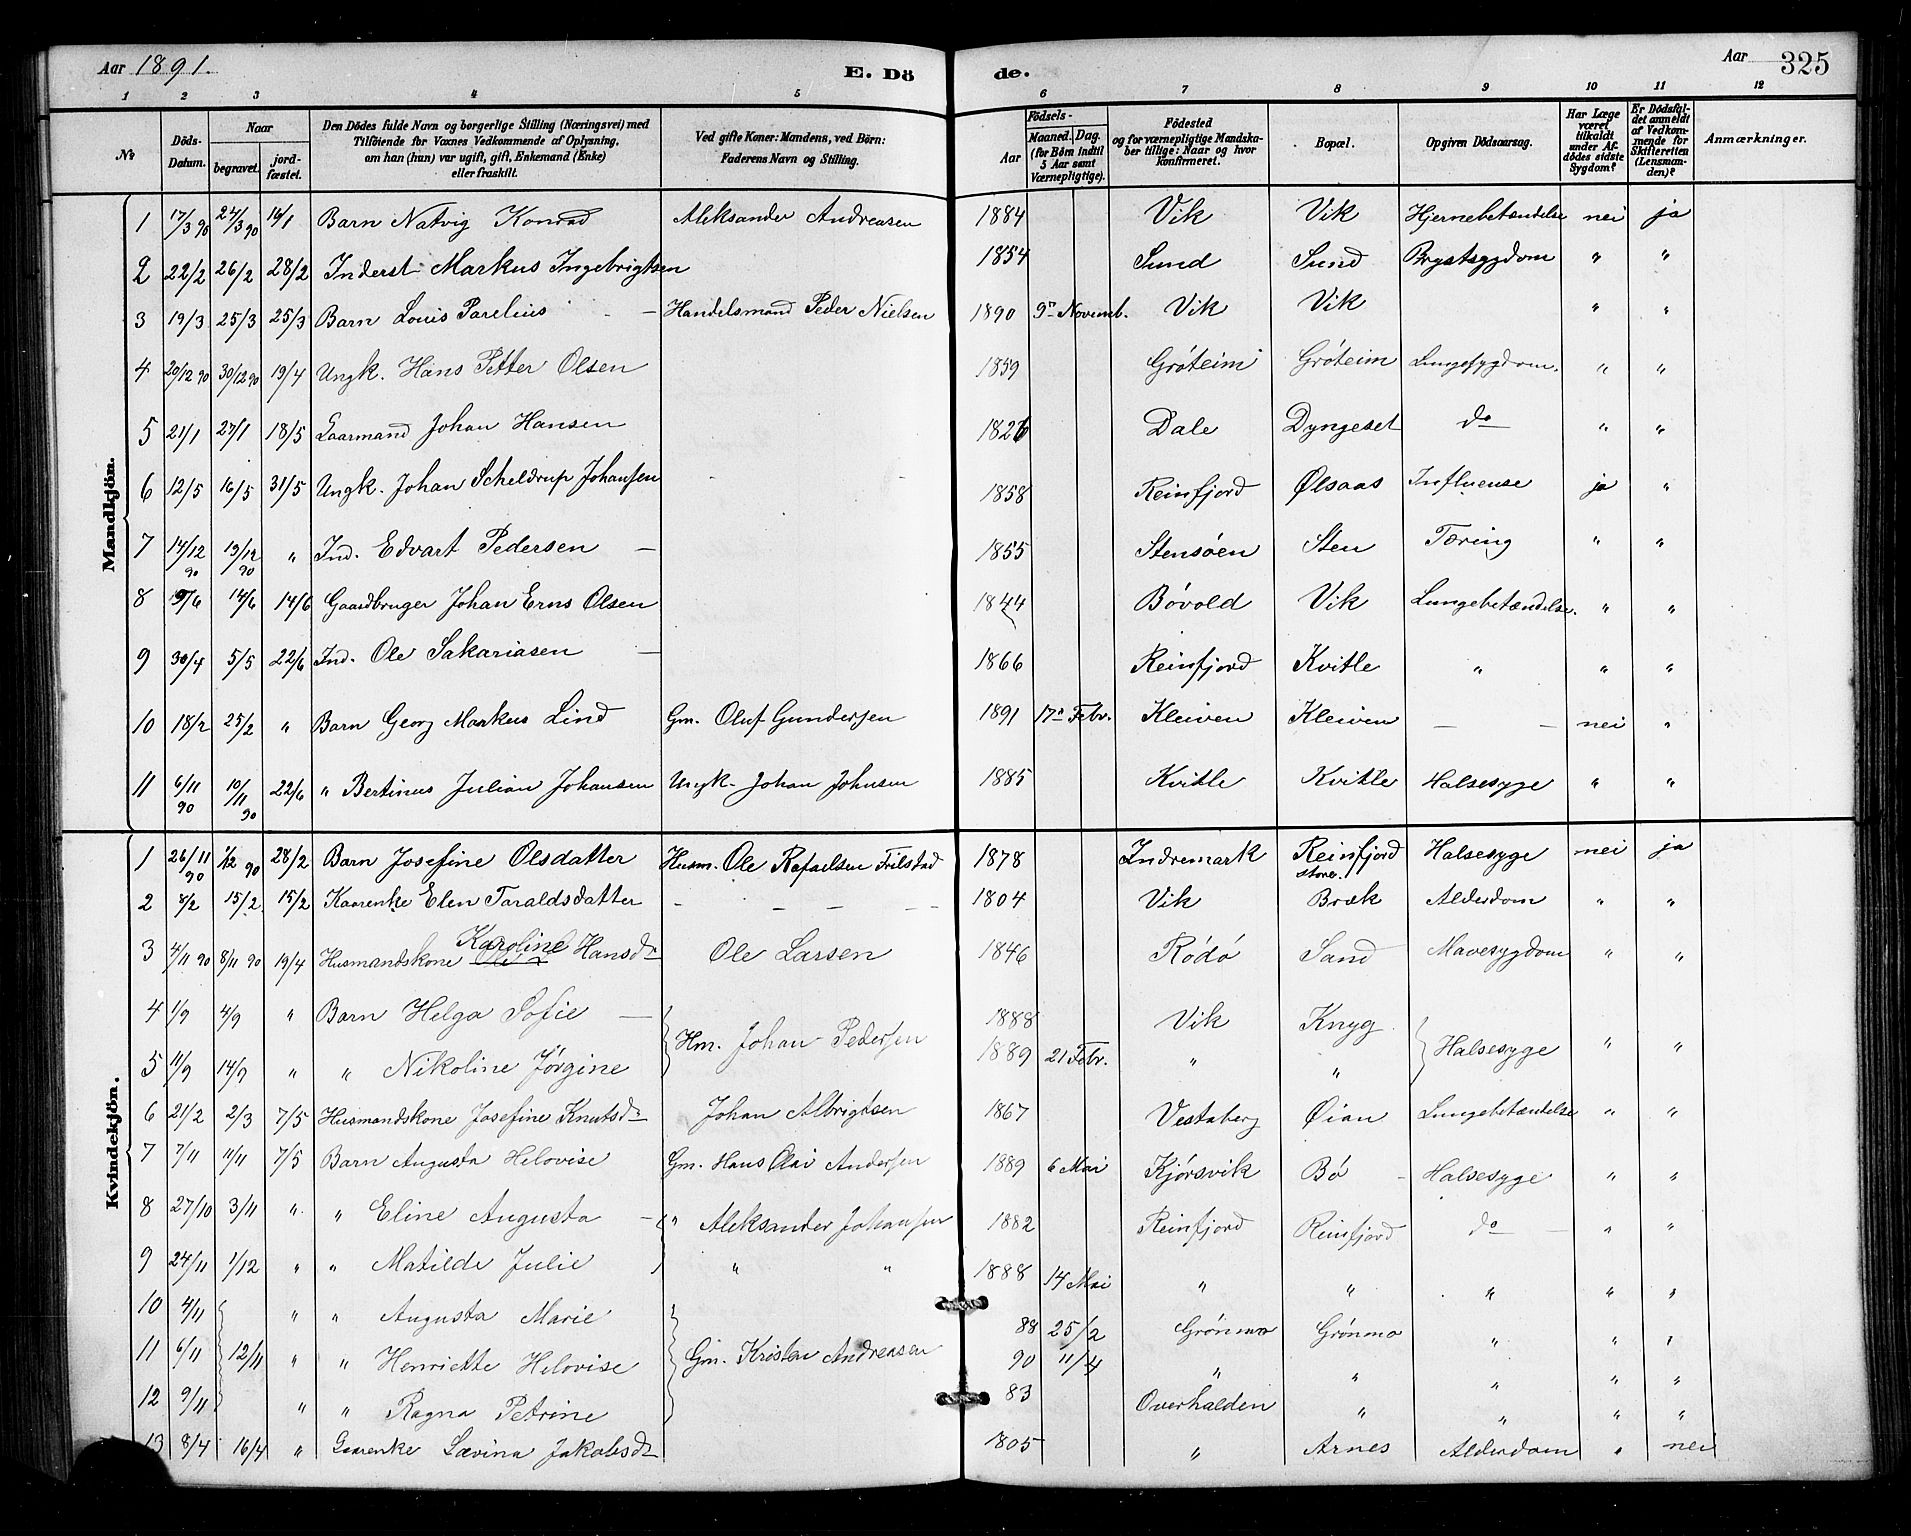 Aar 1891.
E. Dö
de.
Aar 325
1 2 3 4 5 6 7 8 9 10 11 12
№
Döds-Datum.
Naar
begravet.
jord-fæstet.
Den Dödes fulde Navn og borgerlige Stilling (Næringsvei) med
Tilföiende for Voxnes Vedkommende af Oplysning,
om han (hun) var ugift, gift, Enkemand (Enke)
eller fraskilt.
Ved gifte Koner: Mandens, ved Börn:
Faderens Navn og Stilling.
Födsels-
Aar
Maaned. Dag.
(for Börn indtil
5 Aar samt
Værnepligtige).
Födested
og for værnepligtige Mandska-
ber tillige: Naar og hvor
konfirmeret.
Bopæl.
Opgiven Dödsaarsag.
Har Læge
været
tilkaldt
under Af-
dödes sidste
Sygdom?
Er Dödsfal-
det anmeldt
af Vedkom-
mende for
Skifteretten
(Lensman-
den)?
Anmærkninger.
Mandkjön.
1 17/3 90 24/3 90 19/1 Barn Natvig Konrad Aleksander Andreasen 1884 Vik Vik Hjernebetændelse nei ja
2 22/2 26/2 28/2 Inderst Markus Ingebrigtsen 1854 Sund Sund Brystsygdom " "
3 19/3 25/3 25/3 Barn Louis Parelius — Handelsmand Peder Nielsen 1890 9de Novemb. Vik Vik " "
4 20/12 90 30/12 90 19/4 Ungk. Hans Petter Olsen 1859 Gróteim Gróteim Lungesygdom. " "
5 21/1 27/1 18/5 Gaarmand Johan Hansen 1826 Dale Dyngeset do " "
6 12/5 16/5 31/5 Ungk. Johan Scheldrup Johansen 1858 Reinfjord Ølsaas Influense ja "
7 14/12 90 19/12 90 " Ind. Edvart Pedersen — 1855 Stensöen Sten Tæring " "
8 9/6 14/6 14/6 Gaardbruger Johan Erns Olsen 1844 Bóvold Vik Lungebetændelse. " "
9 30/4 5/5 22/6 Ind. Ole Sakariasen — 1866 Reinfjord Kvitle " " "
10 18/2 25/2 " Barn Georg Markus Lind Gm. Oluf Gundersen 1891 17de Febr. Kleiven Kleiven — — nei "
11 6/11 90 10/11 90 22/6 " Bertinus Julian Johansen Ungk. Johan Johnsen 1885 Kvitle Kvitle Halsesyge " "
Kvindekjön.
1 26/11 90 1/12 90 28/2 Barn Josefine Olsdatter Husm. Ole Rafaelsen Frilstad 1878 Indremark Reinfjord store. Halsesyge nei ja
2 8/2 15/2 15/2 Kaarenke Elen Taraldsdatter — — — — 1804 Vik Bræk Alderdom " "
3 4/11 90 8/11 90 19/4 Husmandskone Karoline Hansdr Ole Larsen 1846 Rödö Sand Mavesygdom " "
4 1/9 4/9 " Barn Helga Sofie — 1888 Vik Knyg
Hm. Johan Pedersen Halsesyge " "
5 11/9 14/9 " " Nikoline Jörgine 1889 21 Febr. " "
6 21/2 2/3 7/5 Husmandskone Josefine Knutsdr Johan Albrigtsen 1867 Vestaberg Øian Lungebetændelse " "
7 7/11 11/11 7/5 Barn Augusta Helovise Gm. Hans Olai Andersen 1889 6 Mai Kjórsvik Bó — Halsesyge " "
8 27/10 3/11 " " Eline Augusta — " Aleksander Johansen 1882 Reinfjord Reinfjord do — " "
9 24/11 1/12 " " Matilde Julie " " 1888 14 Mai " " " " "
10 4/11 " " Augusta Marie 88 25/2 Grönmo Grönmo " " "
11 6/11 12/11 " " Henriette Helovise Gm. Kristen Andreasen 90 11/4 " " " " "
12 9/11 " " Ragna Petrine 83 Overhalden " " " "
13 8/4 16/4 " Gaarenke Lævina Jakobsdr 1805 " Arnes Alderdom " nei